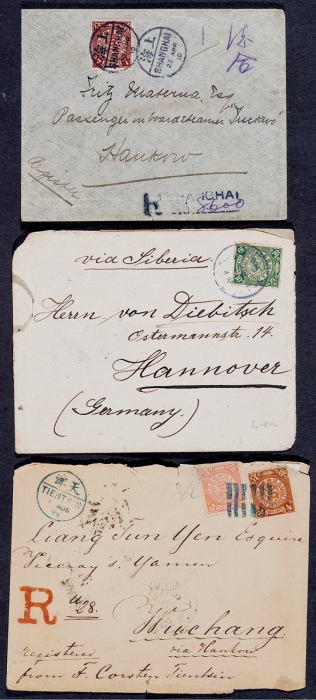 上海
SHANGHAI
上海
SHANGHAI
Fritz Materna, Esq
Passenger on board steamer "Tuckwo"
Hankow
Register
SHANGHAI
8600
via Siberia.
Herrn von Diebitsch
Ostermannstr. 14.
Hannover
(Germany.)
天津
TIENTSIN
AUG
Liang Tun Yen Esquire
Viceroy's Yamen
R
428.
Wuchang
via Hankow
registered
from F. Corsten Tientsin